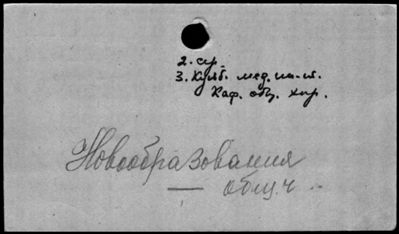 2. ср.
3. Куйб. мед. ин-т.
Каф. общ. хир.
Новообразования
— общ. ч.